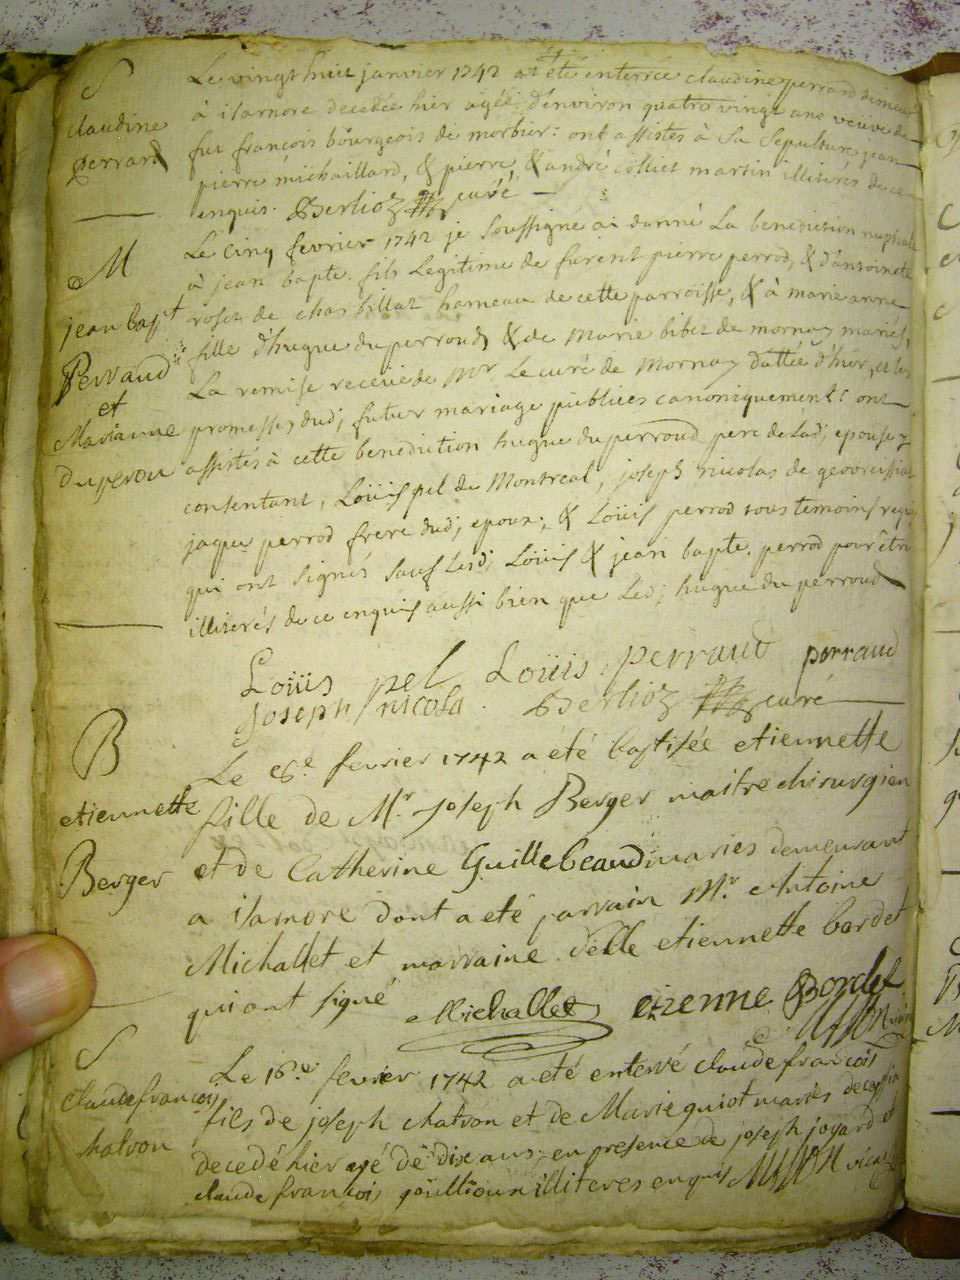 S
claudine
perrard
Le vingt huit janvier 1742 a été enterrée claudine perrard
à isarnore decedée hier agée d'environ quatre vingt ans veuve de
fut françois bourgeois de morbier: ont assistés à sa sepulture jean
pierre michaillard, & pierre & andré colliet martin illiterés de ce
enquis. Berlioz curé
M
jean bapt
Perraud
et
Marianne
Duperou
Le cinq fevrier 1742 je soussigne ai donné La benediction nuptiale
à jean bapte. fils Legitime de furent pierre perrod, & d'antoinete
roset de charbillat hameau de cette parroisse, & à marie anne
fille d'hugue du perroud, & de Marie bibet de mornay mariés,
La remise receüe de Mr. Le curé de Mornay dattée d'hier, et les
promesses dud; futur mariage publiées canoniquement: ont
assistés à cette benediction hugue du perroud pere de lad; epouse y
consentant, Loüis pel de Montreal, joseph nicolas de geovreissiat
jaque perrod frere dud; epoux; & Loüis perrod tous temoins
qui ont signés sauf lesd; Loüis & jean bapte. perrod pour être
illiterés de ce enquis aussi bien que led; hugue du perroud
Loüis pel Loüis perraud perraud
Joseph nicola. Berlioz curé
B
etiennette
Berger
Le 8e fevrier 1742 a été baptisée etiennette
fille de Mr. Joseph Berger maitre chirurgien
et de Catherine Guillebeaud mariés demeurant
a isarnore dont a eté parrain Mr. Antoine
Michallet et marraine delle etiennette bordet
qui ont signé Michallet etienne Bordet
S
claude françois
chatron
Le 16e fevrier 1742 a eté enterré claude françois
fils de joseph chatron et de Marie guiot mariés
decedé hier agé de dix ans en presence de joseph joyard et
claude françois illiteres enquis